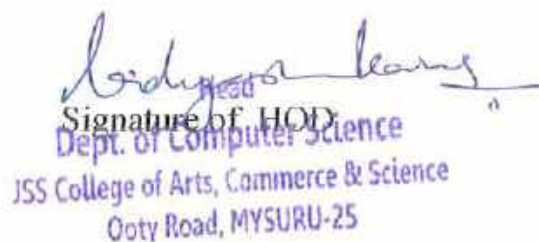 Head
Signature of HOD
Dept. of Computer Science
JSS College of Arts, Commerce & Science
Ooty Road, MYSURU-25